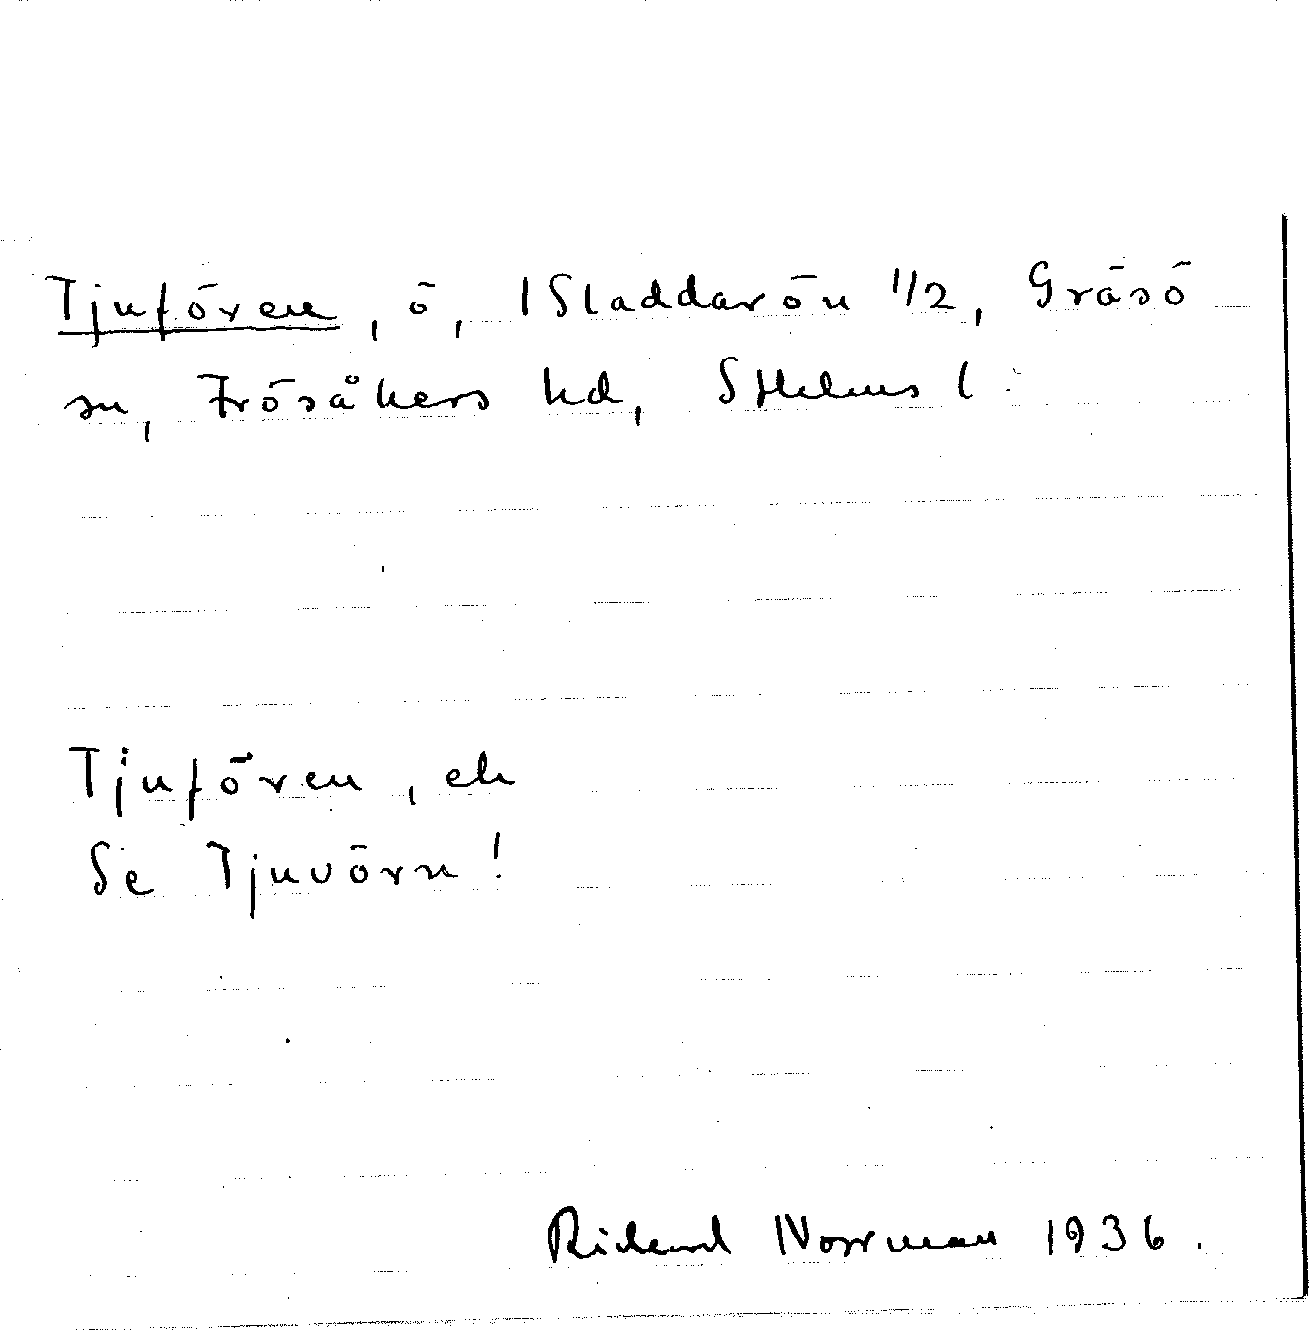 Tjufören, ö, 1 Sladdarön 1/2, Gräsö
sn, Frösåkers hd, Sthlms l
Tjufören, ek
Se Tjuvörn!
Richard Norrman 1936.